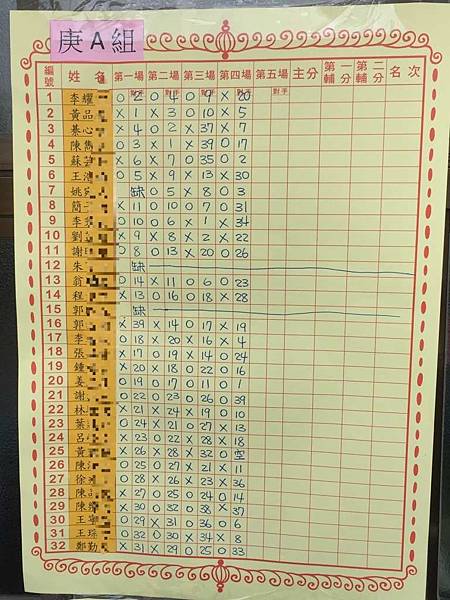 庚A組
編號 姓名 第一場 第二場 第三場 第四場 第五場 主分 第一輔分 第二輔分 名次
對手 對手 對手 對手 對手
1 李耀 O 2 O 4 O 9 X 20
2 黃品 X 1 X 3 O 10 X 5
3 綦心 X 4 O 2 X 37 X 7
4 陳雋 O 3 X 1 X 39 O 17
5 蘇芸 X 6 X 7 O 35 O 2
6 王 O 5 X 9 X 13 X 30
7 姚 缺 O 5 X 8 O 3
8 簡 X 11 O 10 O 7 O 31
9 李 O 10 O 6 X 1 X 34
10 劉 X 9 X 8 X 2 X 22
11 謝 O 8 O 13 X 20 O 26
12 朱 缺
13 翁 O 14 X 11 O 6 O 23
14 程 X 13 O 16 O 18 X 28
15 郭 缺
16 郭 X 39 X 14 O 17 X 19
17 李 O 18 X 20 X 16 X 4
18 張 X 17 O 19 X 14 O 24
19 鍾 X 20 X 18 O 22 O 16
20 姜 O 19 O 17 O 11 O 1
21 謝 O 22 O 23 O 26 O 39
22 林 X 21 X 24 X 19 O 10
23 葉 O 24 X 21 O 27 X 13
24 呂 X 23 O 22 X 28 X 18
25 黃 X 26 X 28 X 32 O 空
26 陳 O 25 O 27 X 21 X 11
27 徐 O 28 X 26 X 23 X 36
28 陳品 X 27 O 25 O 24 O 14
29 陳 X 30 O 32 O 38 X 37
30 王 O 29 X 31 O 36 O 6
31 王 O 32 O 30 X 34 X 8
32 鄭勤 X 31 X 29 O 25 O 33